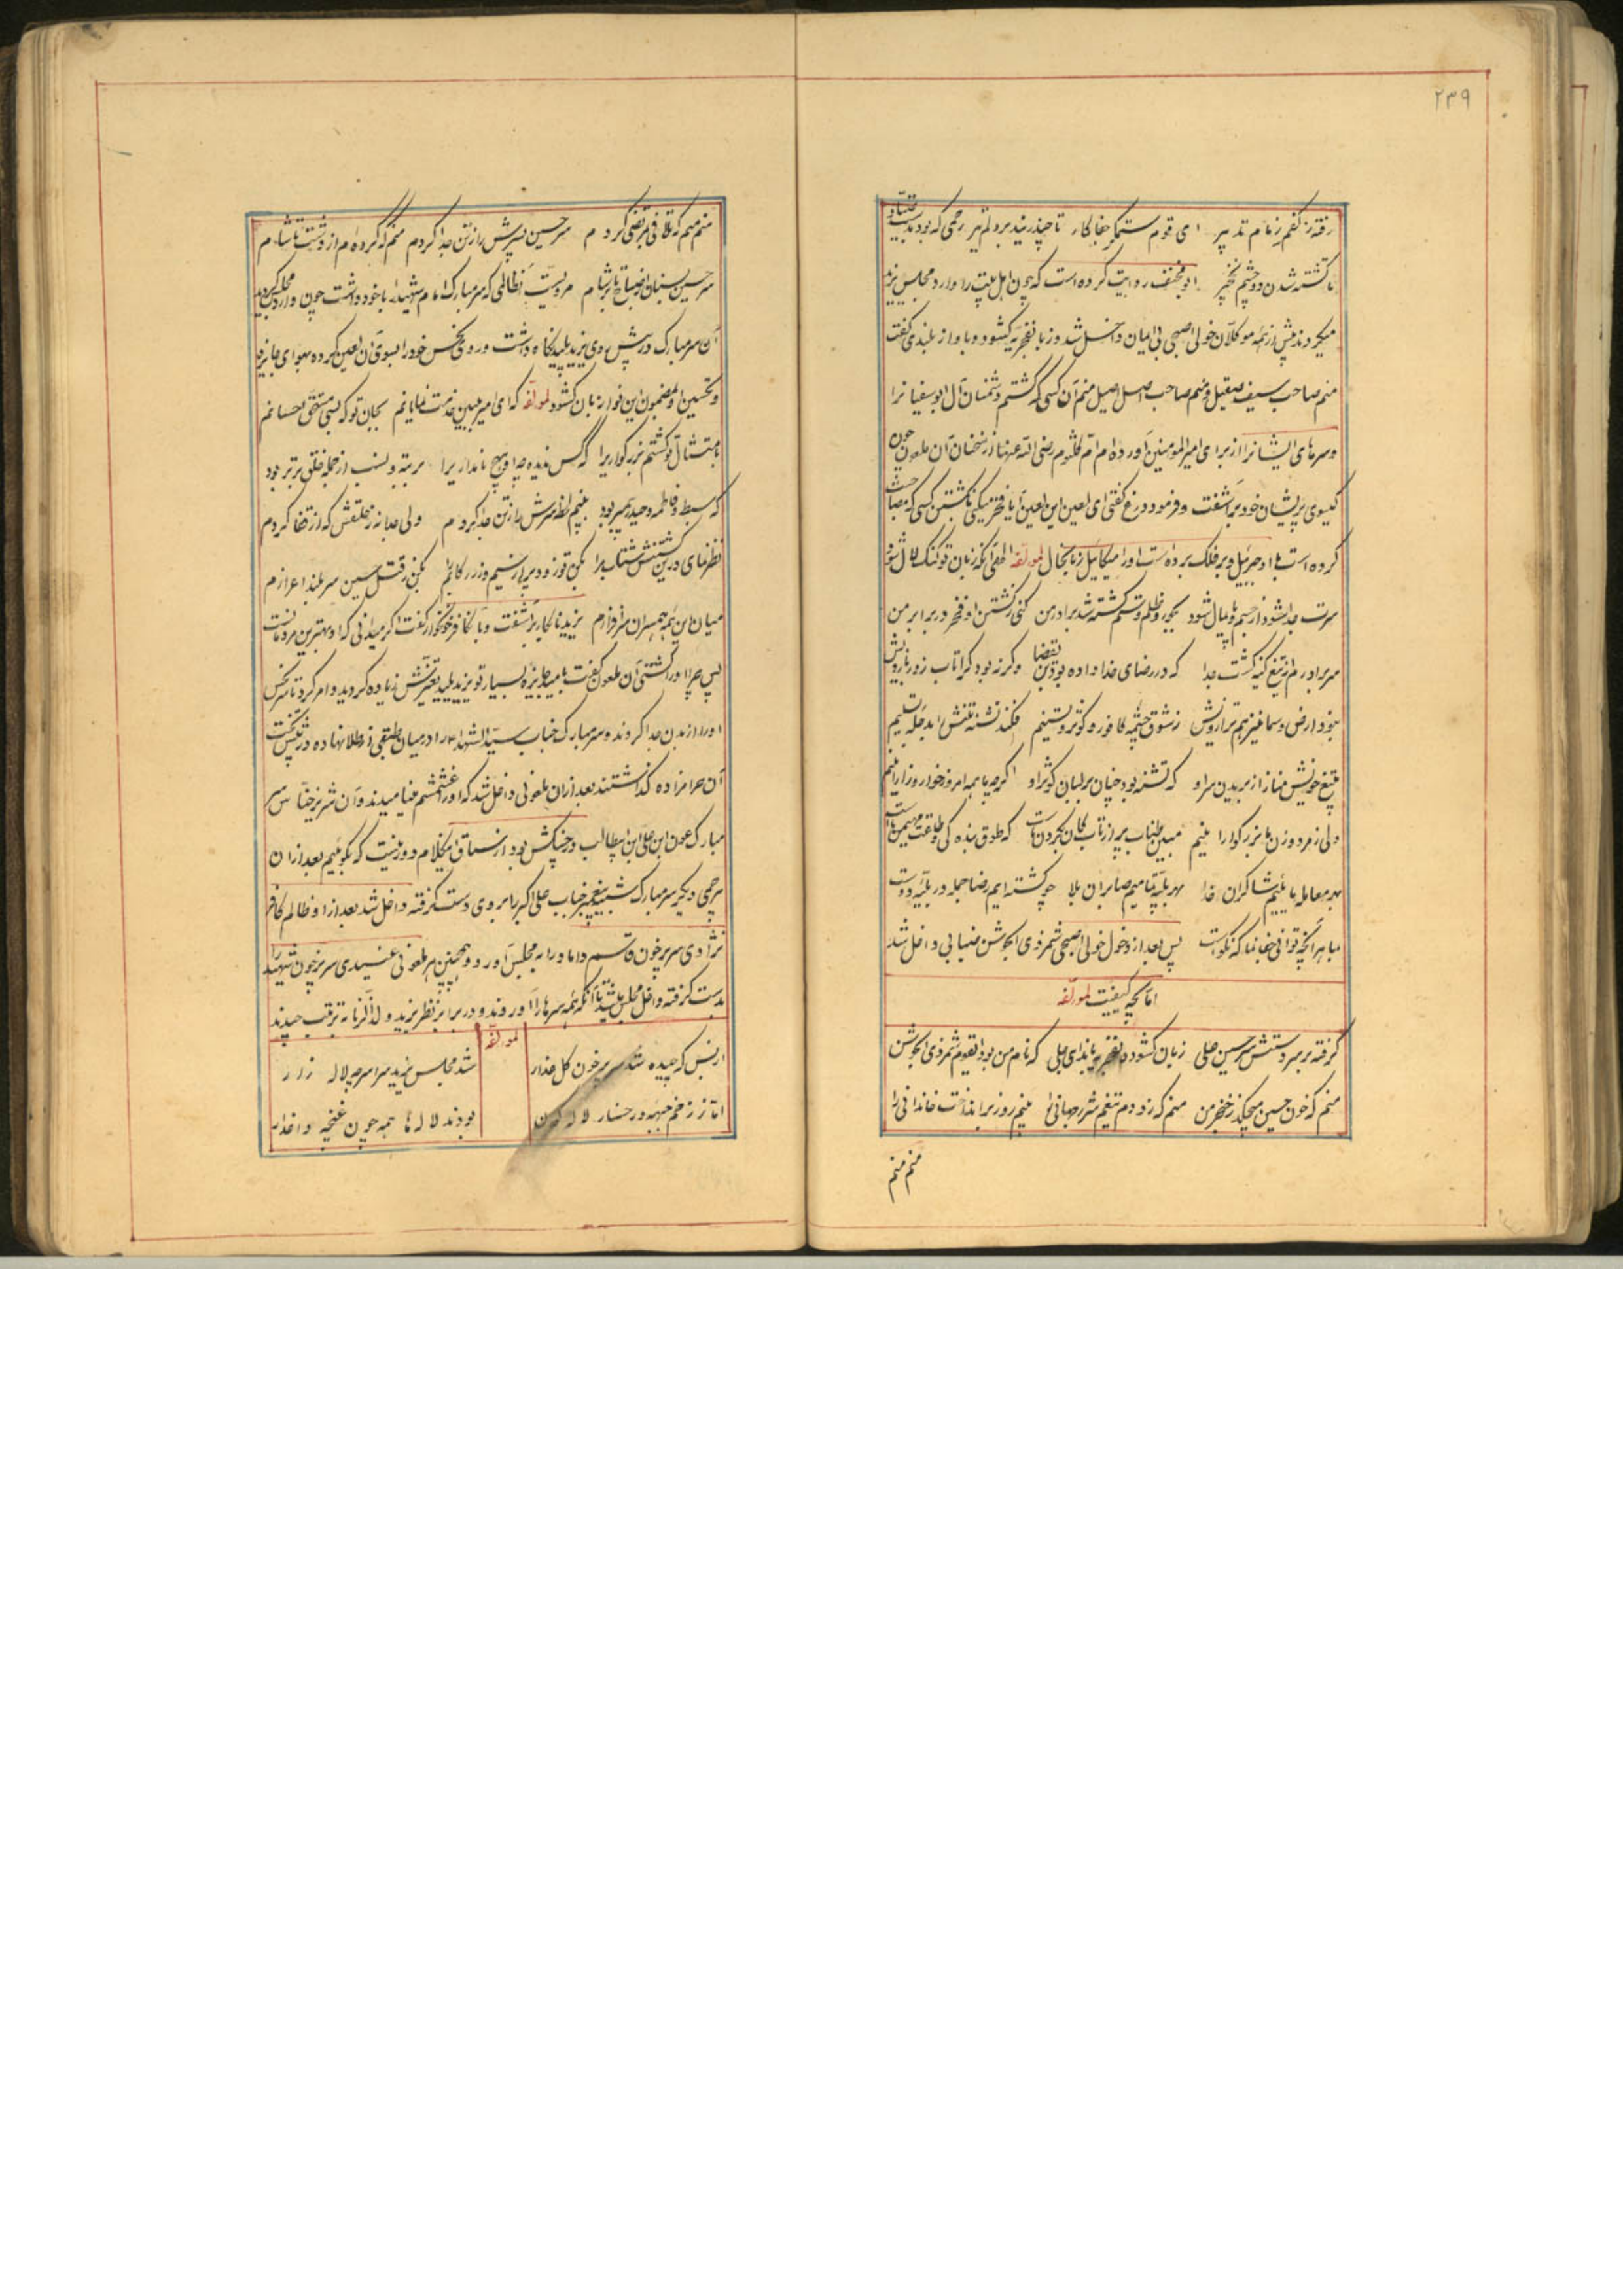 ۲۳۹
رفته ز کفم زمام تدبیر ای قوم ستمکار جفاکار تا چند زنید بر دلم تیر رحمی که بود
تا کشته شدن دو چشم نخجیر ابو مخنف روایت کرده است که چون اهل بیت را وارد مجلس یزید
میکردند پیش از همه موکلان خولی اصبحی بی ایمان داخل شد و زبان بفخریه کشود و باواز بلند میگفت
منم صاحب سیف صقیل و منم صاحب اصل اصیل منم آن کسی که کشتم دشمنان آل ابوسفیان را
و سرهای ایشانرا از برای امیرالمومنین آورده ام ام کلثوم رضی الله عنها از سخنان آن ملعون چون
کیسوی پریشان خود برآشفت و فرمود دروغ کفتی ای لعین ابن لعین آیا فخر میکنی بکشتن کسی که
کرده است با او جبرئیل و بر فلک برده است او را میکائیل زبانحال لمؤلفه الهی آنکه زبان تو کنک و لال شود
سرت جدا شود از جسم و پایمال شود بجور و ظلم و ستم کشته شد برادر من کنی ز کشتن او فخر در برابر من
سر برادرم از تیغ کینه کشت جدا که در رضای خدا داده بود تن بقضا وکرنه بود کرا تاب زور بازویش
نبود ارض و سما نیز هم ترازویش ز شوق چشمه کافور و کوثر و تسنیم فکند تشنه تنش
بتیغ خویش مناز از بریدن سر او که تشنه بود چنان بر لبان کوثر او اکرچه ما همه امروز خوار و زار تنیم
ولی ز مرد و زن ما بزرکوارا نیم مبین طناب پر از تاب کان بکردن ماست که طوق بنده کی طاعت مهیمن ماست
بهر معامله مائیم شاکران خدا بهر بلیه تمامیم صابران بلا چو کشته ایم رضا جمله در بلیه دوست
بما هر آنچه توانی جفا نما که نکوست پس بعد از دخول خولی اصبحی شمر ذی الجوشن ضبابی داخل شد
اما بچه کیفیت لمؤلفه
کرفته بر سر دستش سر حسین علی زبان کشود بفخریه با ندای جلی که نام من بود ایقوم شمر ذی الجوشن
منم که خون حسین میچکد ز خنجر من منم که زد دم تیغم شرر جهانی را منم ز روز برانداخت خاندانی را
منم منم
منم منم که تلافی مرتضی کردم سر حسین پسرش را ز تن جدا کردم منم که کرده ام از دشت تا شام
سر حسین بسنان از صباح تا بر شام مرویست آن ظالمی که سر مبارک امام شهیدان با خود داشت چون وارد مجلس کردید
آن سر مبارک در پیش روی یزید پلید نکاه داشت و روی نحس خود را بسوی آن لعین کرده بهوای جایزه
و تحسین او بمضمون این فواره زبان کشود لمؤلفه که ای امیر ببین خدمت نمایانم بجان تو که بسی مستحق احسانم
بامتثال تو کشتم بزرکواریرا که کس ندیده چو او هیچ نامداریرا برتبه و بنسب از جمله خلق برتر بود
که سبط و فاطمه و حیدر و پیمبر بود بنیم لحظه سرش را ز تن جدا کردم ولی جدا نه ز حلقش که از قفا کردم
نظر نمای درین کشتنش شتاب مرا بکن تو زود پر از سیم و زر رکاب مرا بکن ز قتل حسین سر بلند اعزازم
میان این همه همسران سرفرازم یزید نابکار برآشفت و با آن کافر خونخوار کفت اکر میدانی که او بهترین مردمانست
پس چرا او را کشتی آن ملعون کفت بامید جایزه بسیار تو یزید پلید تغیرش زیاده کردید و امر کرد تا سر نحس
او را از بدن جدا کردند و سر مبارک جناب سیدالشهداء را در میان طبقی از طلا نهاده در پیش تخت
آن حرامزاده کذاشتند بعد از ان ملعونی داخل شد که او را مینامیدند و آن شریر خناس سر
مبارک عون ابن علی ابن ابیطالب در چنکش بود از سیاق اینکلام دور نیست که بکوئیم بعد از ان
بیرحمی دیکر سر مبارک شبیه پیغمبر جناب علی اکبر را بر روی دست کرفته داخل شد بعد از او ظالم کافر
نژادی سر پر خون قاسم داماد را به مجلس آورد و همچنین هر ملعونی عنیدی سر پر خون شهیدیرا
بدست کرفته داخل مجلس شد تا آنکه همه سرها را آوردند و در برابر نظر یزید ولد الزنا به ترتیب چیدند
از بس که چیده شد سر پر خون کل عذار لمؤلفه شد مجلس یزید سراسر چو لاله زار
اما ز زخم جبهه و رخسار لاله کون بودند لاله ها همه چون غنچه داغدار